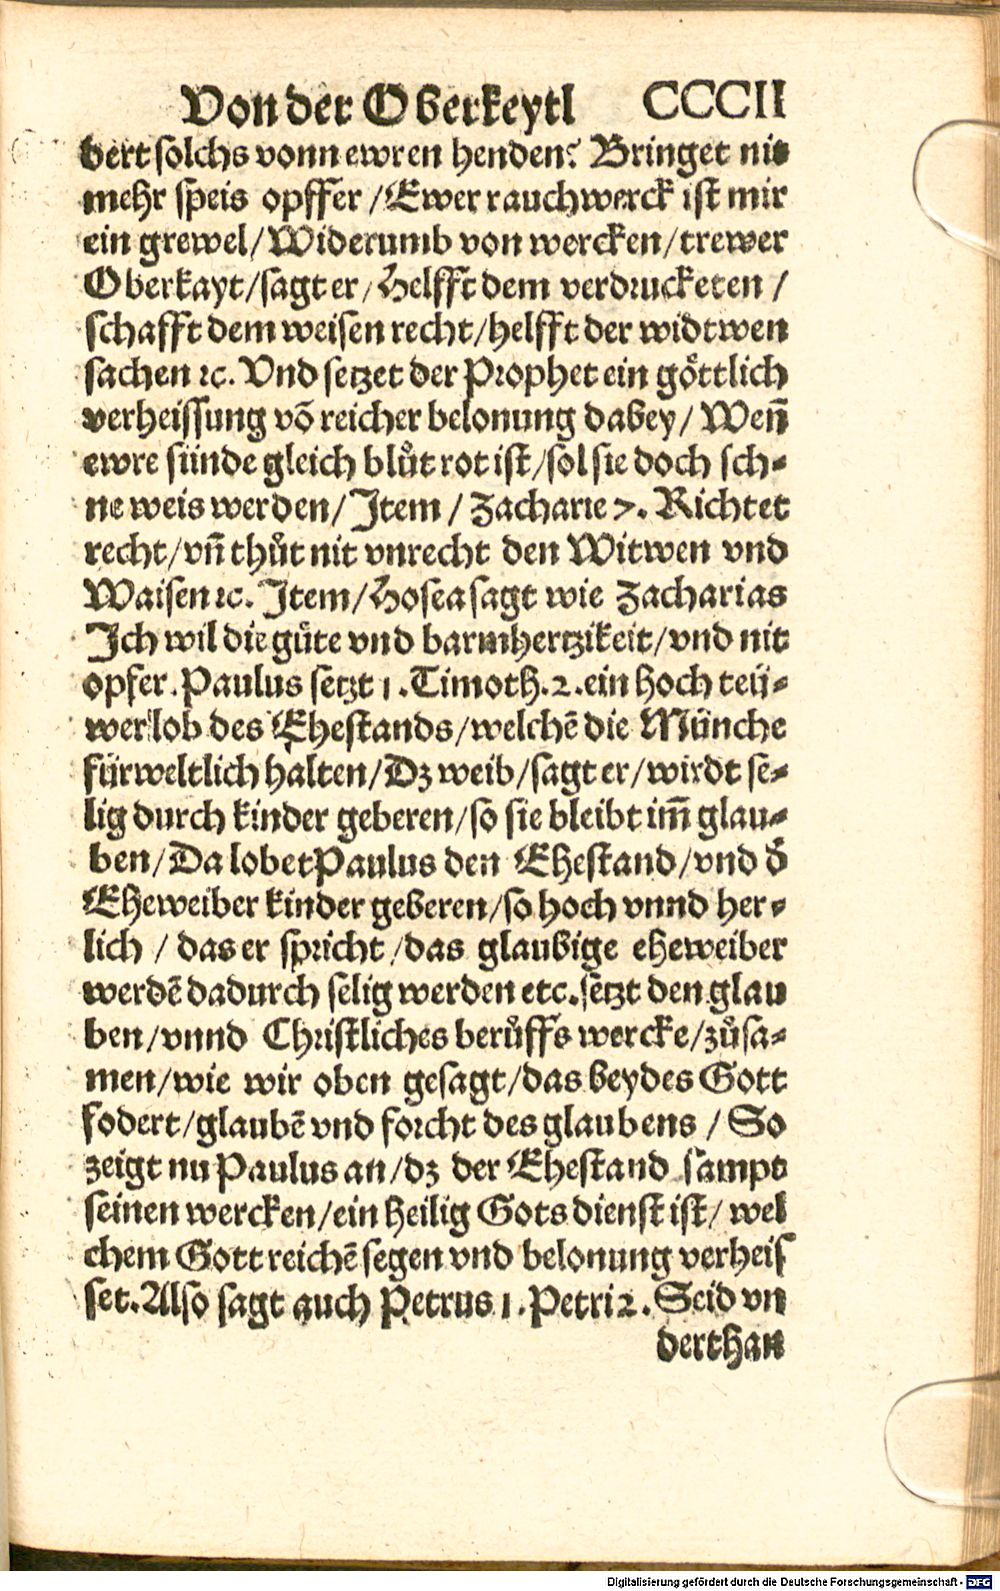 Von der Oberkeytl CCCII
dert solchs vonn ewren henden? Bringet nit
mehr speis opffer / Ewer rauchwerck ist mir
ein grewel / Widerumb von wercken / trewer
Oberkayt / sagt er / Helfft dem verdrucketen /
schafft dem weisen recht / helfft der widtwen
sachen ꝛc. Vnd setzet der Prophet ein göttlich
verheissung võ reicher belonung dabey / Weñ
ewre sünde gleich blůt rot ist / sol sie doch sch-
ne weis werden / Item / Zacharie 7. Richtet
recht / vñ thůt nit vnrecht den Witwen vnd
Waisen ꝛc. Item / Hosea sagt wie Zacharias
Ich wil die güte vnd barmhertzikeit / vnd nit
opfer. Paulus setzt 1. Timoth. 2. ein hoch teü-
wer lob des Ehestands / welchẽ die Münche
für weltlich halten / Dz weib / sagt er / wirdt se-
lig durch kinder geberen / so sie bleibt im̃ glau-
ben / Da lobet Paulus den Ehestand / vnd d̃
Eheweiber kinder geberen / so hoch vnnd her-
lich / das er spricht / das glaubige eheweiber
werdẽ dadurch selig werden etc. setzt den glau
ben / vnnd Christliches berůffs wercke / zůsa-
men / wie wir oben gesagt / das beydes Gott
fodert / glaubẽ vnd forcht des glaubens / So
zeigt nu Paulus an / dz der Ehestand sampt
seinen wercken / ein heilig Gots dienst ist / wel
chem Gott reichẽ segen vnd belonung verheis
set. Also sagt auch Petrus 1. Petri 2. Seid vn
derthan
Digitalisierung gefördert durch die Deutsche Forschungsgemeinschaft - DFG